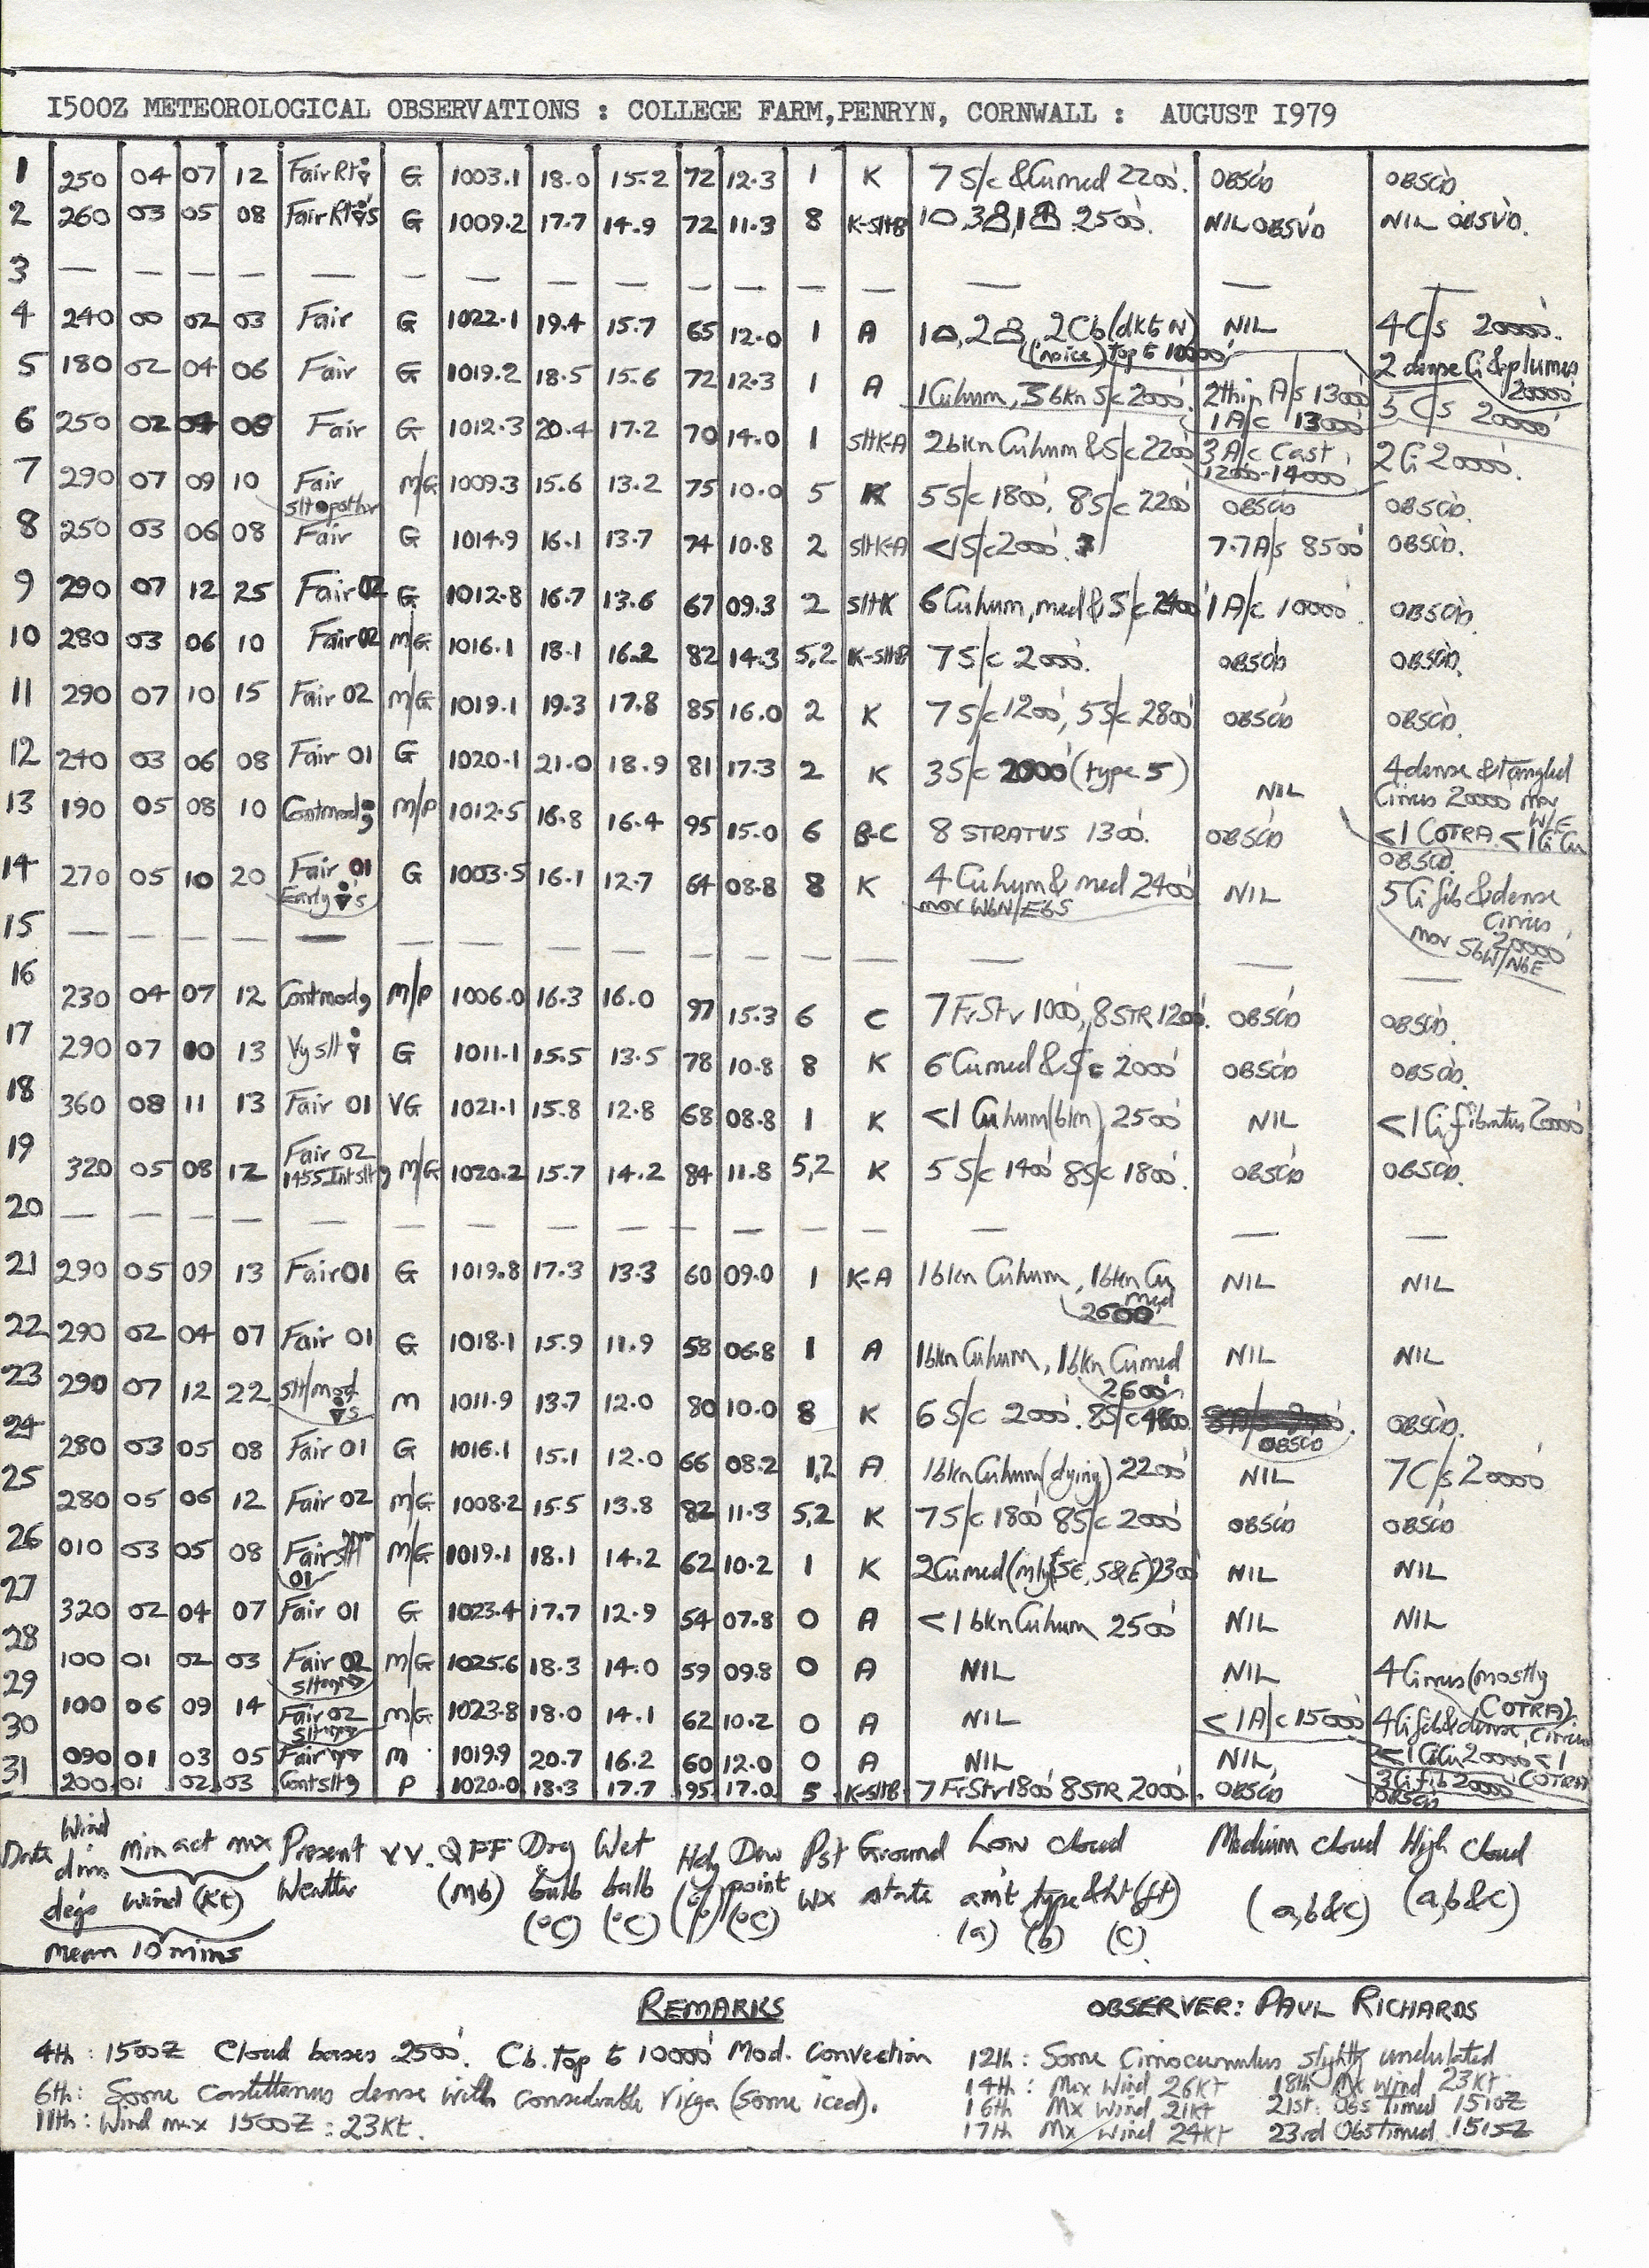 1500Z METEOROLOGICAL OBSERVATIONS : COLLEGE FARM,PENRYN, CORNWALL : AUGUST 1979
1 250 04 07 12 Fair G 1003.1 18.0 15.2 72 12.3 1 K 7 S/c & Cumed 2200'. OBSCD OBSCD.
2 260 03 05 08 Fair G 1009.2 17.7 14.9 72 11.3 8 K-SltB 2500'. NIL OBSVD NIL OBSVD.
3 — — — — — — — — — — — — — — — —
4 240 00 02 03 Fair G 1022.1 19.4 15.7 65 12.0 1 A 2Cb (dkt N) (noice) top to 10000' NIL 4C/s 20000'. 2 dense Ci & plumes 20000'
5 180 02 04 06 Fair G 1019.2 18.5 15.6 72 12.3 1 A 1Cuhum, 3 bkn S/c 2000'. 2thin A/s 13000' 1A/c 13000' 5 C/s 20000'
6 250 02 04 08 Fair G 1012.3 20.4 17.2 70 14.0 1 sltK-A 2bkn Cuhum & S/c 2200' 3 A/c Cast 12000-14000' 2Ci 20000'.
7 290 07 09 10 Fair M/G 1009.3 15.6 13.2 75 10.0 5 K 5S/c 1800', 8S/c 2200' OBSCD OBSCD.
8 250 03 06 08 Fair G 1014.9 16.1 13.7 74 10.8 2 sltK-A <1S/c 2000'. 7.7A/s 8500' OBSCD.
9 290 07 12 25 Fair 02 G 1012.8 16.7 13.6 67 09.3 2 sltK 6 Cuhum, med & S/c 2400' 1A/c 10000'. OBSCD.
10 280 03 06 10 Fair 02 M/G 1016.1 18.1 16.2 82 14.3 5,2 K-sltB 7S/c 2000'. OBSCD OBSCD.
11 290 07 10 15 Fair 02 M/G 1019.1 19.3 17.8 85 16.0 2 K 7S/c 1200', 5S/c 2800' OBSCD OBSCD.
12 240 03 06 08 Fair 01 G 1020.1 21.0 18.9 81 17.3 2 K 3S/c 2000' (type 5) NIL 4dense & tangled Cirrus 20000 mov W/E <1 COTRA. <1CiCu
13 190 05 08 10 Contmod M/P 1012.5 16.8 16.4 95 15.0 6 B-C 8 STRATUS 1300'. OBSCD OBSCD.
14 270 05 10 20 Fair 01 Early G 1003.5 16.1 12.7 64 08.8 8 K 4 Cuhum & med 2400' mov WbN/EbS NIL 5Ci fib & dense Cirrus 20000' mov SbW/NbE
15 — — — — — — — — — — — — — — — —
16 230 04 07 12 Contmod M/P 1006.0 16.3 16.0 97 15.3 6 C 7FrStr 1000', 8STR 1200'. OBSCD OBSCD.
17 290 07 10 13 Vy slt G 1011.1 15.5 13.5 78 10.8 8 K 6 Cumed & S/c 2000' OBSCD OBSCD.
18 360 08 11 13 Fair 01 VG 1021.1 15.8 12.8 68 08.8 1 K <1 Cuhum (bkn) 2500' NIL <1 Ci fibratus 20000'
19 320 05 08 12 Fair 02 1455 Int slt M/G 1020.2 15.7 14.2 84 11.8 5,2 K 5S/c 1400' 8S/c 1800'. OBSCD OBSCD.
20 — — — — — — — — — — — — — — — —
21 290 05 09 13 Fair 01 G 1019.8 17.3 13.3 60 09.0 1 K-A 1bkn Cuhum, 1bkn Cu med 2600' NIL NIL
22 290 02 04 07 Fair 01 G 1018.1 15.9 11.9 58 06.8 1 A 1bkn Cuhum, 1bkn Cumed 2600' NIL NIL
23 290 07 12 22 slt/mod M 1011.9 13.7 12.0 80 10.0 8 K 6 S/c 2000'. 8S/c OBSCD OBSCD.
24 280 03 05 08 Fair 01 G 1016.1 15.1 12.0 66 08.2 1,2 A 1bkn Cuhum (dying) 2200' NIL 7C/s 20000'
25 280 05 06 12 Fair 02 M/G 1008.2 15.5 13.8 82 11.3 5,2 K 7S/c 1800' 8S/c 2000' OBSCD OBSCD
26 010 03 05 08 Fair slt 01 M/G 1019.1 18.1 14.2 62 10.2 1 K 2Cumed (mly SE, S&E) 2300' NIL NIL
27 320 02 04 07 Fair 01 G 1023.4 17.7 12.9 54 07.8 0 A <1 bkn Cuhum 2500' NIL NIL
28 100 01 02 03 Fair 02 M/G 1025.6 18.3 14.0 59 09.8 0 A NIL NIL 4Cirrus (mostly COTRA)
29 100 06 09 14 Fair 02 M/G 1023.8 18.0 14.1 62 10.2 0 A NIL <1A/c 15000' 4Ci fib & dense Cirrus <1CiCu 20000' <1 COTRA
30 090 01 03 05 Fair M 1019.9 20.7 16.2 60 12.0 0 A NIL NIL 3Ci fib 20000'
31 200 01 02 03 Contslt P 1020.0 18.3 17.7 95 17.0 5 K-sltB 7 FrStr 1800' 8STR 2000'. OBSCD OBSCD
Date Wind dirn degs Min act mx Wind (Kt) Mean 10 mins Present Weather VV. QFF (Mb) Dry bulb (°C) Wet bulb (°C) Hdy (%) Dew point (°C) Pst Wx Ground state Low cloud amt type & ht (ft) (a) (b) (c) Medium cloud (a,b&c) High cloud (a,b&c)
REMARKS OBSERVER: PAUL RICHARDS
4th: 1500Z Cloud bases 2500'. Cb. top to 10000' Mod. Convection
6th: Some castellanus dense with considerable virga (some iced).
11th: Wind max 1500Z: 23Kt.
12th: Some Cirrocumulus slightly undulated
14th: Mx Wind 26Kt 18th Mx Wind 23Kt
16th Mx Wind 21Kt 21st: Obs Timed 1510Z
17th Mx Wind 24Kt 23rd Obs timed 1515Z